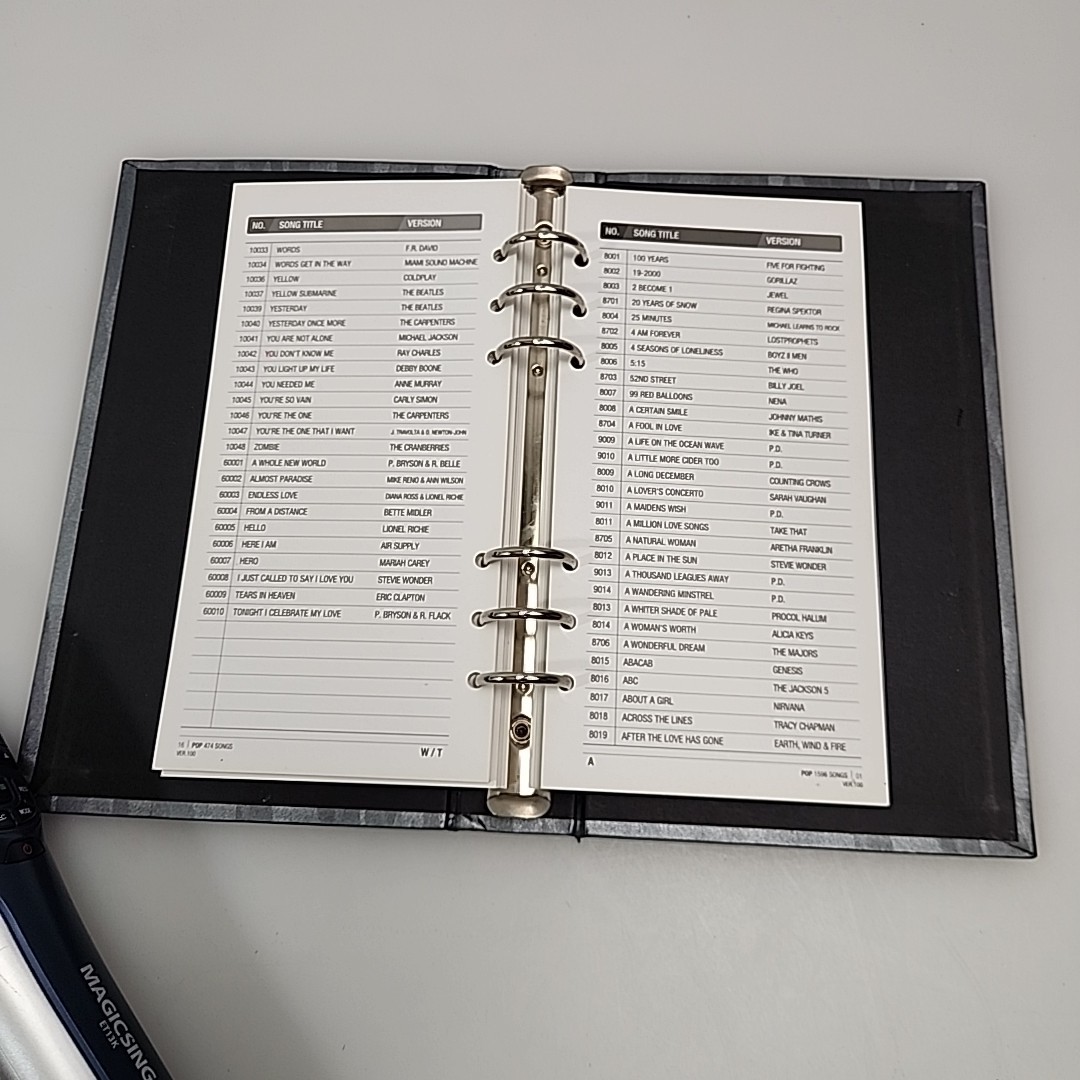 NO. SONG TITLE VERSION
10033 WORDS F.R. DAVID
10034 WORDS GET IN THE WAY MIAMI SOUND MACHINE
10036 YELLOW COLDPLAY
10037 YELLOW SUBMARINE THE BEATLES
10039 YESTERDAY THE BEATLES
10040 YESTERDAY ONCE MORE THE CARPENTERS
10041 YOU ARE NOT ALONE MICHAEL JACKSON
10042 YOU DON'T KNOW ME RAY CHARLES
10043 YOU LIGHT UP MY LIFE DEBBY BOONE
10044 YOU NEEDED ME ANNE MURRAY
10045 YOU'RE SO VAIN CARLY SIMON
10046 YOU'RE THE ONE THE CARPENTERS
10047 YOU'RE THE ONE THAT I WANT J. TRAVOLTA & O. NEWTON-JOHN
10048 ZOMBIE THE CRANBERRIES
60001 A WHOLE NEW WORLD P. BRYSON & R. BELLE
60002 ALMOST PARADISE MIKE RENO & ANN WILSON
60003 ENDLESS LOVE DIANA ROSS & LIONEL RICHIE
60004 FROM A DISTANCE BETTE MIDLER
60005 HELLO LIONEL RICHIE
60006 HERE I AM AIR SUPPLY
60007 HERO MARIAH CAREY
60008 I JUST CALLED TO SAY I LOVE YOU STEVIE WONDER
60009 TEARS IN HEAVEN ERIC CLAPTON
60010 TONIGHT I CELEBRATE MY LOVE P. BRYSON & R. FLACK
16 | POP 474 SONGS
VER.100
W / T
NO. SONG TITLE VERSION
8001 100 YEARS FIVE FOR FIGHTING
8002 19-2000 GORILLAZ
8003 2 BECOME 1 JEWEL
8701 20 YEARS OF SNOW REGINA SPEKTOR
8004 25 MINUTES MICHAEL LEARNS TO ROCK
8702 4 AM FOREVER LOSTPROPHETS
8005 4 SEASONS OF LONELINESS BOYZ II MEN
8006 5:15 THE WHO
8703 52ND STREET BILLY JOEL
8007 99 RED BALLOONS NENA
8008 A CERTAIN SMILE JOHNNY MATHIS
8704 A FOOL IN LOVE IKE & TINA TURNER
9009 A LIFE ON THE OCEAN WAVE P.D.
9010 A LITTLE MORE CIDER TOO P.D.
8009 A LONG DECEMBER COUNTING CROWS
8010 A LOVER'S CONCERTO SARAH VAUGHAN
9011 A MAIDENS WISH P.D.
8011 A MILLION LOVE SONGS TAKE THAT
8705 A NATURAL WOMAN ARETHA FRANKLIN
8012 A PLACE IN THE SUN STEVIE WONDER
9013 A THOUSAND LEAGUES AWAY P.D.
9014 A WANDERING MINSTREL P.D.
8013 A WHITER SHADE OF PALE PROCOL HALUM
8014 A WOMAN'S WORTH ALICIA KEYS
8706 A WONDERFUL DREAM THE MAJORS
8015 ABACAB GENESIS
8016 ABC THE JACKSON 5
8017 ABOUT A GIRL NIRVANA
8018 ACROSS THE LINES TRACY CHAPMAN
8019 AFTER THE LOVE HAS GONE EARTH, WIND & FIRE
A
POP 1596 SONGS | 01
VER.100
MAGICSING
ET13K